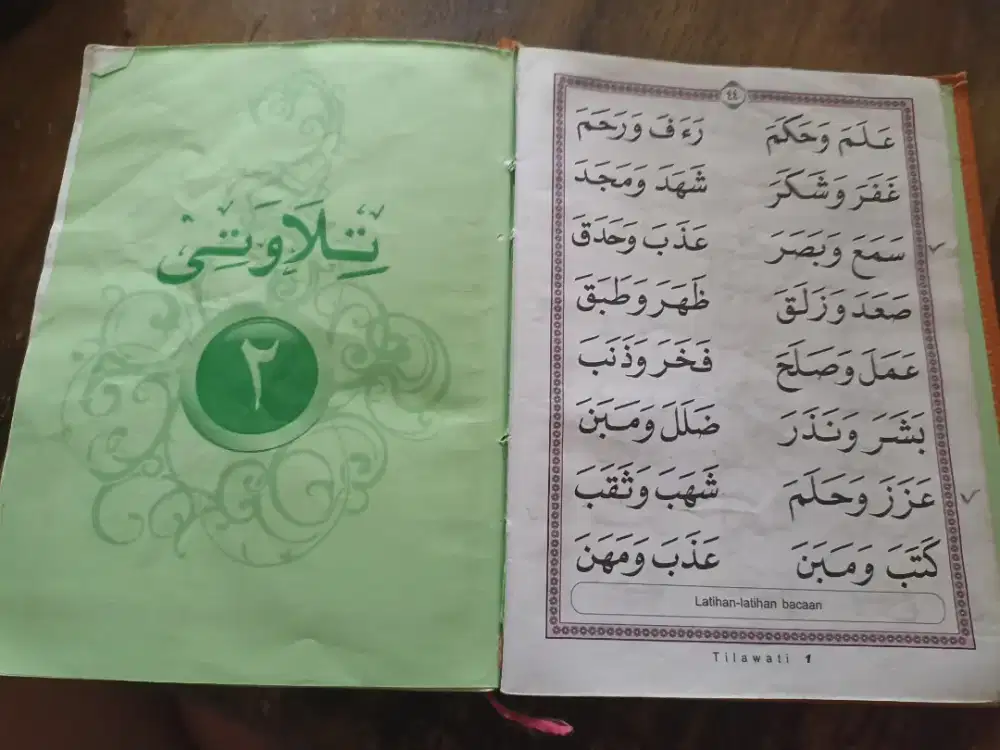 تِلَاوَتِى
٢
٤٤
عَلَمَ وَحَكَمَ رَءَفَ وَرَحَمَ
غَفَرَ وَشَكَرَ شَهَدَ وَمَجَدَ
سَمَعَ وَبَصَرَ عَذَبَ وَحَدَقَ
صَعَدَ وَزَلَقَ ظَهَرَ وَطَبَقَ
عَمَلَ وَصَلَحَ فَخَرَ وَذَنَبَ
بَشَرَ وَنَذَرَ ضَلَلَ وَمَبَنَ
عَزَزَ وَحَلَمَ شَهَبَ وَثَقَبَ
كَتَبَ وَمَبَنَ عَذَبَ وَمَهَنَ
Latihan-latihan bacaan
Tilawati 1